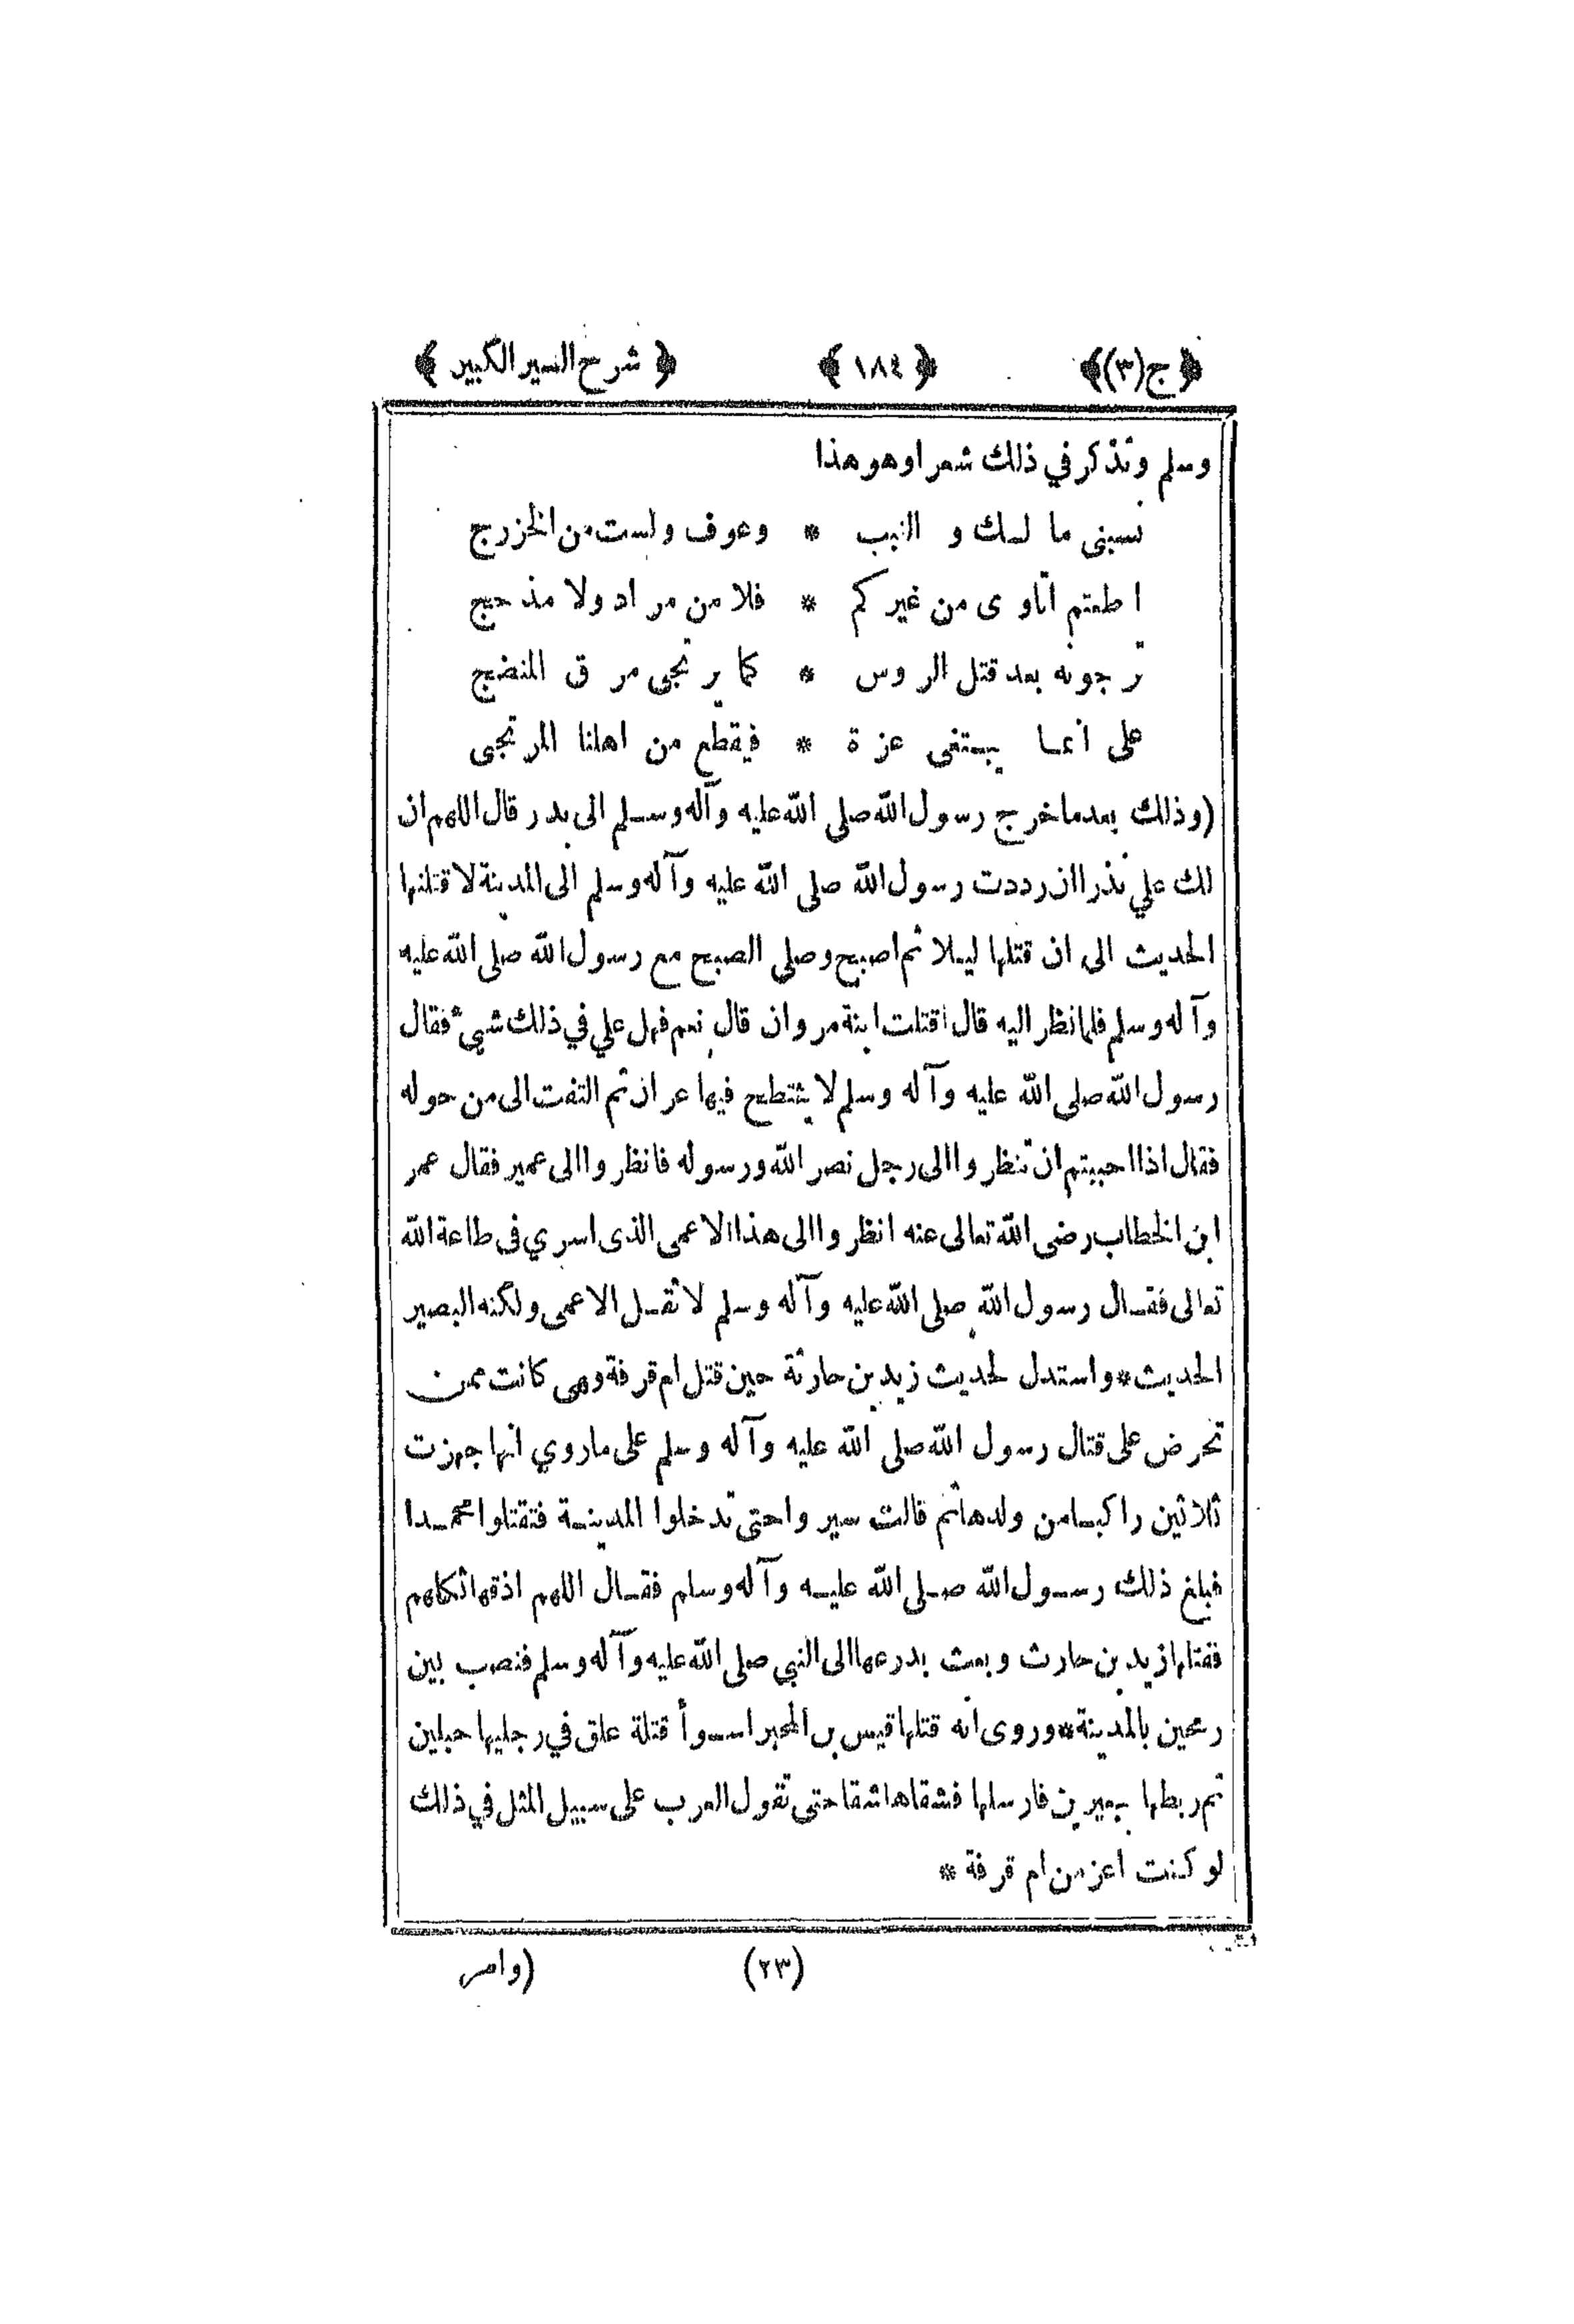 ﴿ج(٣)﴾ ﴿١٨٤﴾ ﴿شرح السير الكبير﴾
وسلم وتذكر في ذلك شعرا وهو هذا
نسيني ما لسك و النبيب * وعوف ولست من الخزرج
اطعتم اتاوى من غيركم * فلا من مراد ولا مذحج
ترجونه بعد قتل الروس * كما يرتجى مرق المنضج
على انما يبتغى عزة * فيقطع من اهلنا المرتجى
(وذلك بعد ما خرج رسول الله صلى الله عليه وآله وسلم الى بدر قال اللهم ان
لك علي نذرا ان رددت رسول الله صلى الله عليه وآله وسلم الى المدينة لاقتلنها
الحديث الى ان قتلها ليلا ثم اصبح وصلى الصبح مع رسول الله صلى الله عليه
وآله وسلم فلما نظر اليه قال اقتلت ابنة مروان قال نعم فهل علي في ذلك شيئ فقال
رسول الله صلى الله عليه وآله وسلم لا ينتطح فيها عران ثم التفت الى من حوله
فقال اذا احببتم ان تنظروا الى رجل نصر الله ورسوله فانظروا الى عمير فقال عمر
ابن الخطاب رضى الله تعالى عنه انظروا الى هذا الاعمى الذى اسري في طاعة الله
تعالى فقال رسول الله صلى الله عليه وآله وسلم لا تقل الاعمى ولكنه البصير
الحديث * واستدل لحديث زيد بن حارثة حين قتل ام قرفة وهى كانت ممن
تحرض على قتال رسول الله صلى الله عليه وآله وسلم على ما روي انها جهزت
ثلاثين راكبا من ولدها ثم قالت سيروا حتى تدخلوا المدينة فتقتلوا محمدا
فبلغ ذلك رسول الله صلى الله عليه وآله وسلم فقال اللهم اذقها ثكلهم
فقتلها زيد بن حارث وبعث بدرعها الى النبي صلى الله عليه وآله وسلم فنصب بين
رمحين بالمدينة * وروى انه قتلها قيس بن المحبر اسوأ قتلة علق في رجليها حبلين
ثم ربطها ببعيرين فارسلها فشقاها شقا حتى تقول العرب على سبيل المثل في ذلك
لو كنت اعز من ام قرفة *
(٢٣) (وامر